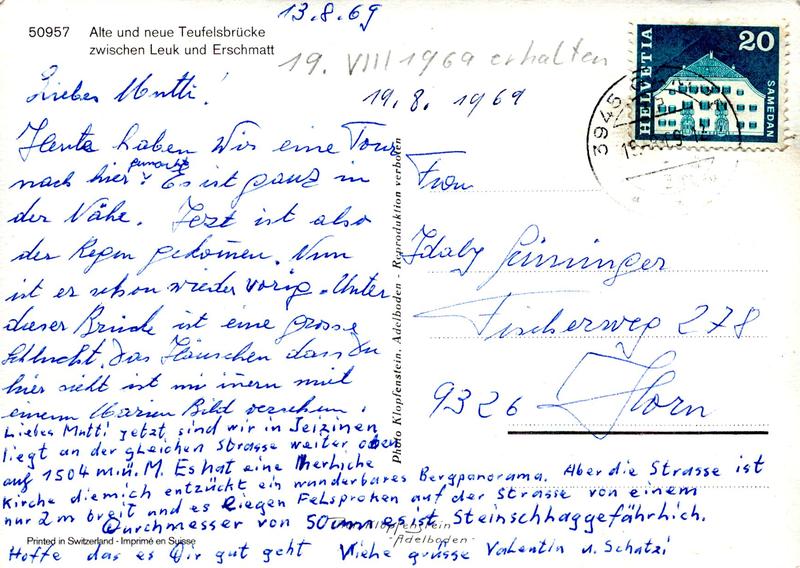 13.8.69
50957 Alte und neue Teufelsbrücke
zwischen Leuk und Erschmatt
19. VIII 1969 erhalten
19.8. 1969
HELVETIA 20 SAMEDAN
3945
Liebes Mutti!
Heute haben Wir eine Tour
nach hier gemacht. Es ist ganz in
der Nähe. Jezt ist also
der Regen gekommen. Nun
ist er schon wieder vorig. Unter
dieser Brücke ist eine grosse
Schlucht. Das Häuschen dass Du
hier sieht ist im inern mit
einem Marien Bild versehen.
Liebes Mutti jetzt sind wir in Jeizinen
liegt an der gleichen Strasse weiter oben
auf 1504 m.ü.M. Es hat eine herliche
Kirche die mich entzückt ein wunderbares Bergpanorama. Aber die Strasse ist
nur 2m breit und es liegen Felsproken auf der Strasse von einem
Durchmesser von 50cm es ist Steinschlaggefährlich.
Hoffe das es Dir gut geht Viehe grüsse Valentin u. Schatzi
Frau
Idaly
Fischerweg 278
9326 Horn
Photo Klopfenstein, Adelboden - Reproduktion verboten
Klopfenstein
-Adelboden-
Printed in Switzerland - Imprimé en Suisse